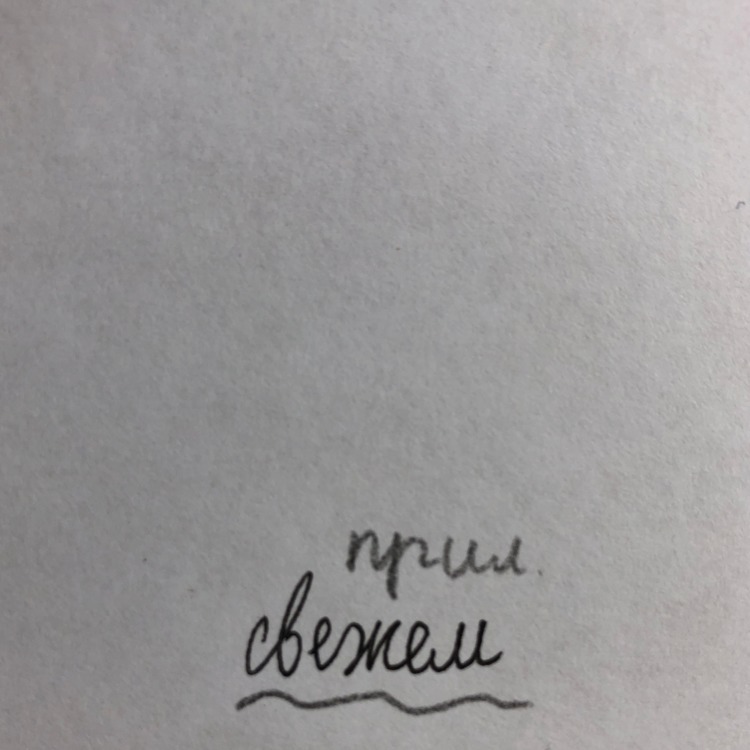 прил.
свежем